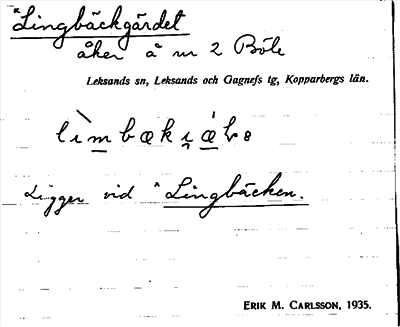 *Lingbäckgärdet
åker å nr 2 Böle
Leksands sn, Leksands och Gagnefs tg, Kopparbergs län.
Ligger vid *Lingbäcken.
ERIK M. CARLSSON, 1935.